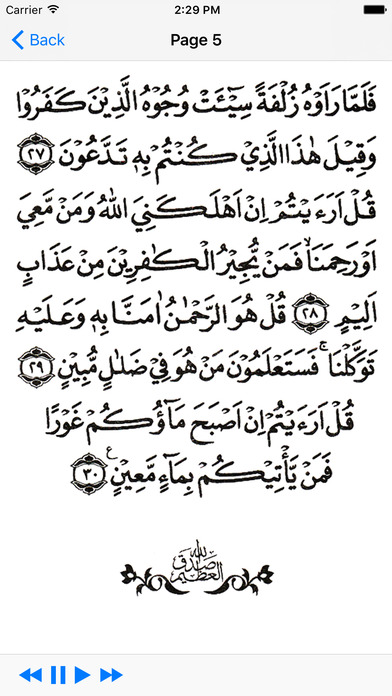 Carrier 2:29 PM
Back Page 5
فَلَمَّا رَاَوْهُ زُلْفَةً سِيْٓـَٔتْ وُجُوْهُ الَّذِيْنَ كَفَرُوْا
وَقِيْلَ هٰذَا الَّذِيْ كُنْتُمْ بِهٖ تَدَّعُوْنَ ﴿٢٧﴾
قُلْ اَرَءَيْتُمْ اِنْ اَهْلَكَنِيَ اللّٰهُ وَمَنْ مَّعِيَ
اَوْ رَحِمَنَاۙ فَمَنْ يُّجِيْرُ الْكٰفِرِيْنَ مِنْ عَذَابٍ
اَلِيْمٍ ﴿٢٨﴾ قُلْ هُوَ الرَّحْمٰنُ اٰمَنَّا بِهٖ وَعَلَيْهِ
تَوَكَّلْنَاۚ فَسَتَعْلَمُوْنَ مَنْ هُوَ فِيْ ضَلٰلٍ مُّبِيْنٍ ﴿٢٩﴾
قُلْ اَرَءَيْتُمْ اِنْ اَصْبَحَ مَآؤُكُمْ غَوْرًا
فَمَنْ يَّأْتِيْكُمْ بِمَآءٍ مَّعِيْنٍ ࣖ ﴿٣٠﴾
صدق الله العظيم